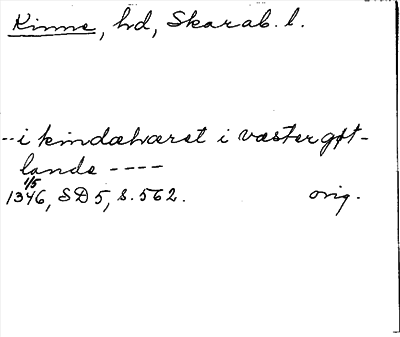 Kinne, hd, Skarab. l.
-- i kindahæret i væstergøt-
lande ----
1/5
1346, SD 5, s. 562. orig.